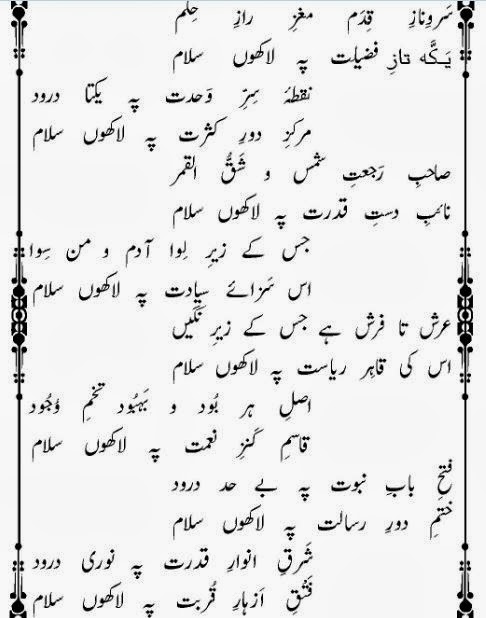 سَروِنازِ قِدَم مغزِ رازِ حِلم
یَکَّہ تازِ فضیلت پہ لاکھوں سلام
نقطۂ سِرِّ وَحدت پہ یکتا درود
مرکزِ دورِ کثرت پہ لاکھوں سلام
صاحبِ رَجعتِ شمس و شَقُّ القمر
نائبِ دستِ قدرت پہ لاکھوں سلام
جس کے زیرِ لِوا آدم و من سِوا
اس سَزائے سیادت پہ لاکھوں سلام
عرش تا فرش ہے جس کے زیرِ نَگیں
اس کی قاہِر ریاست پہ لاکھوں سلام
اصلِ ہر بُود و بَہبُود تخمِ وُجُود
قاسِمِ کَنزِ نعمت پہ لاکھوں سلام
فتحِ بابِ نبوت پہ بے حد درود
ختمِ دورِ رسالت پہ لاکھوں سلام
شَرقِ انوارِ قدرت پہ نوری درود
فَتُقِ اَزہارِ قُربت پہ لاکھوں سلام